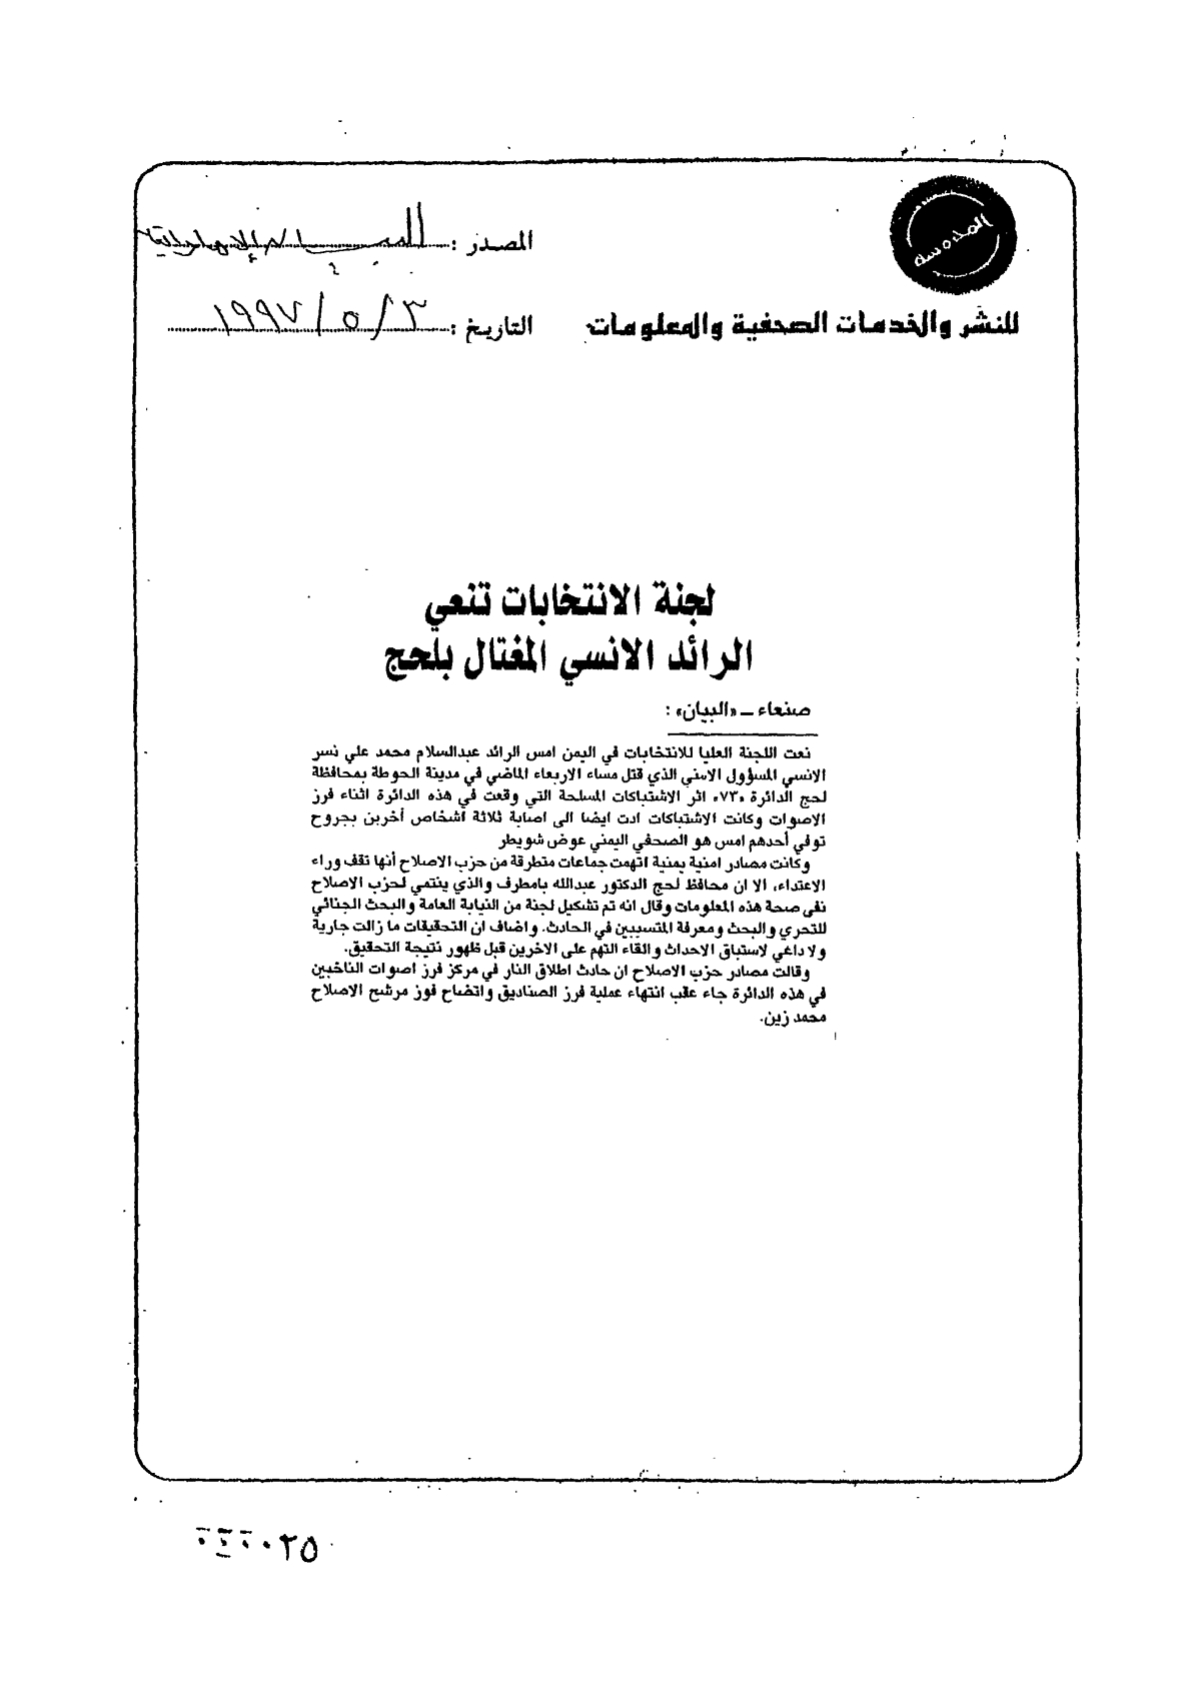 المصدر : البيان الإماراتية
للنشر والخدمات الصحفية والمعلومات
التاريخ : ٣/٥/١٩٩٧
لجنة الانتخابات تنعي
الرائد الانسي المغتال بلحج
صنعاء - «البيان» :
نعت اللجنة العليا للانتخابات في اليمن امس الرائد عبدالسلام محمد علي نسر
الانسي المسؤول الامني الذي قتل مساء الاربعاء الماضي في مدينة الحوطة بمحافظة
لحج الدائرة «٧٣» اثر الاشتباكات المسلحة التي وقعت في هذه الدائرة اثناء فرز
الاصوات وكانت الاشتباكات ادت ايضا الى اصابة ثلاثة اشخاص أخرين بجروح
توفي أحدهم امس هو الصحفي اليمني عوض شويطر
وكانت مصادر امنية يمنية اتهمت جماعات متطرقة من حزب الاصلاح أنها تقف وراء
الاعتداء، الا ان محافظ لحج الدكتور عبدالله بامطرف والذي ينتمي لحزب الاصلاح
نفى صحة هذه المعلومات وقال انه تم تشكيل لجنة من النيابة العامة والبحث الجنائي
للتحري والبحث ومعرفة المتسببين في الحادث. واضاف ان التحقيقات ما زالت جارية
ولا داعي لاستباق الاحداث والقاء التهم على الاخرين قبل ظهور نتيجة التحقيق.
وقالت مصادر حزب الاصلاح ان حادث اطلاق النار في مركز فرز اصوات الناخبين
في هذه الدائرة جاء عقب انتهاء عملية فرز الصناديق واتضاح فوز مرشح الاصلاح
محمد زين.